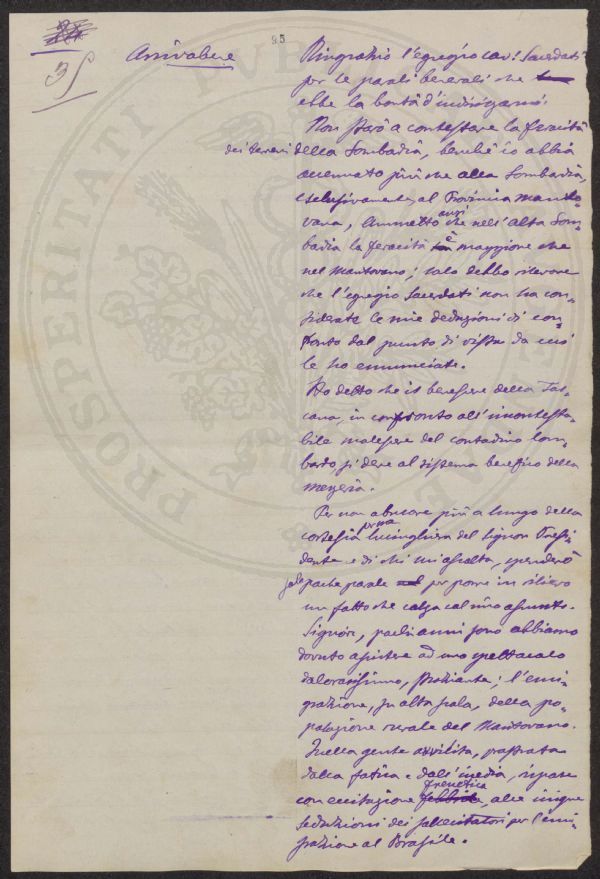 95
35
Arrivabene
Ringrazio l'egregio cav! Sacerdoti
per le parole benevoli che
ebbe la bontà d'indirizzarmi.
Non starò a contestare la feracità
dei terreni della Lombardia, benchè io abbia
accennato più che alla Lombardia,
esclusivamente, al Provincia manto-
vana, Ammetto anzi che nell'alta Lom-
bardia la feracità è maggiore che
nel Mantovano; solo debbo rilevare
che l'egregio Sacerdoti non ha con-
siderate le mie deduzioni di con-
fronto dal punto di vista da cui
le ho enunciate.
Ho detto che il benessere della Tos-
cana, in confronto all'incontesta-
bile malessere del contadino lom-
bardo, si deve al sistema benefico della
mezzeria.
Per non abusare più a lungo della
cortesia lusinghiera del signor Presi-
dente e di chi mi ascolta, spenderò
sole poche parole per porre in rilievo
un fatto che calza col mio assunto.
Signori, pochi anni sono abbiamo
dovuto assistere ad uno spettacolo
dolorosissimo, straziante; l'emi-
grazione, su alta scala, della po-
polazione rurale del Mantovano.
Quella gente avvilita, prostrata
dalla fatica e dall'inedia, rispose
con eccitazione febbrile frenetica, alle inique
seduzioni dei sollecitatori per l'emi-
grazione al Brasile.
PROSPERITATI PUBLICAE